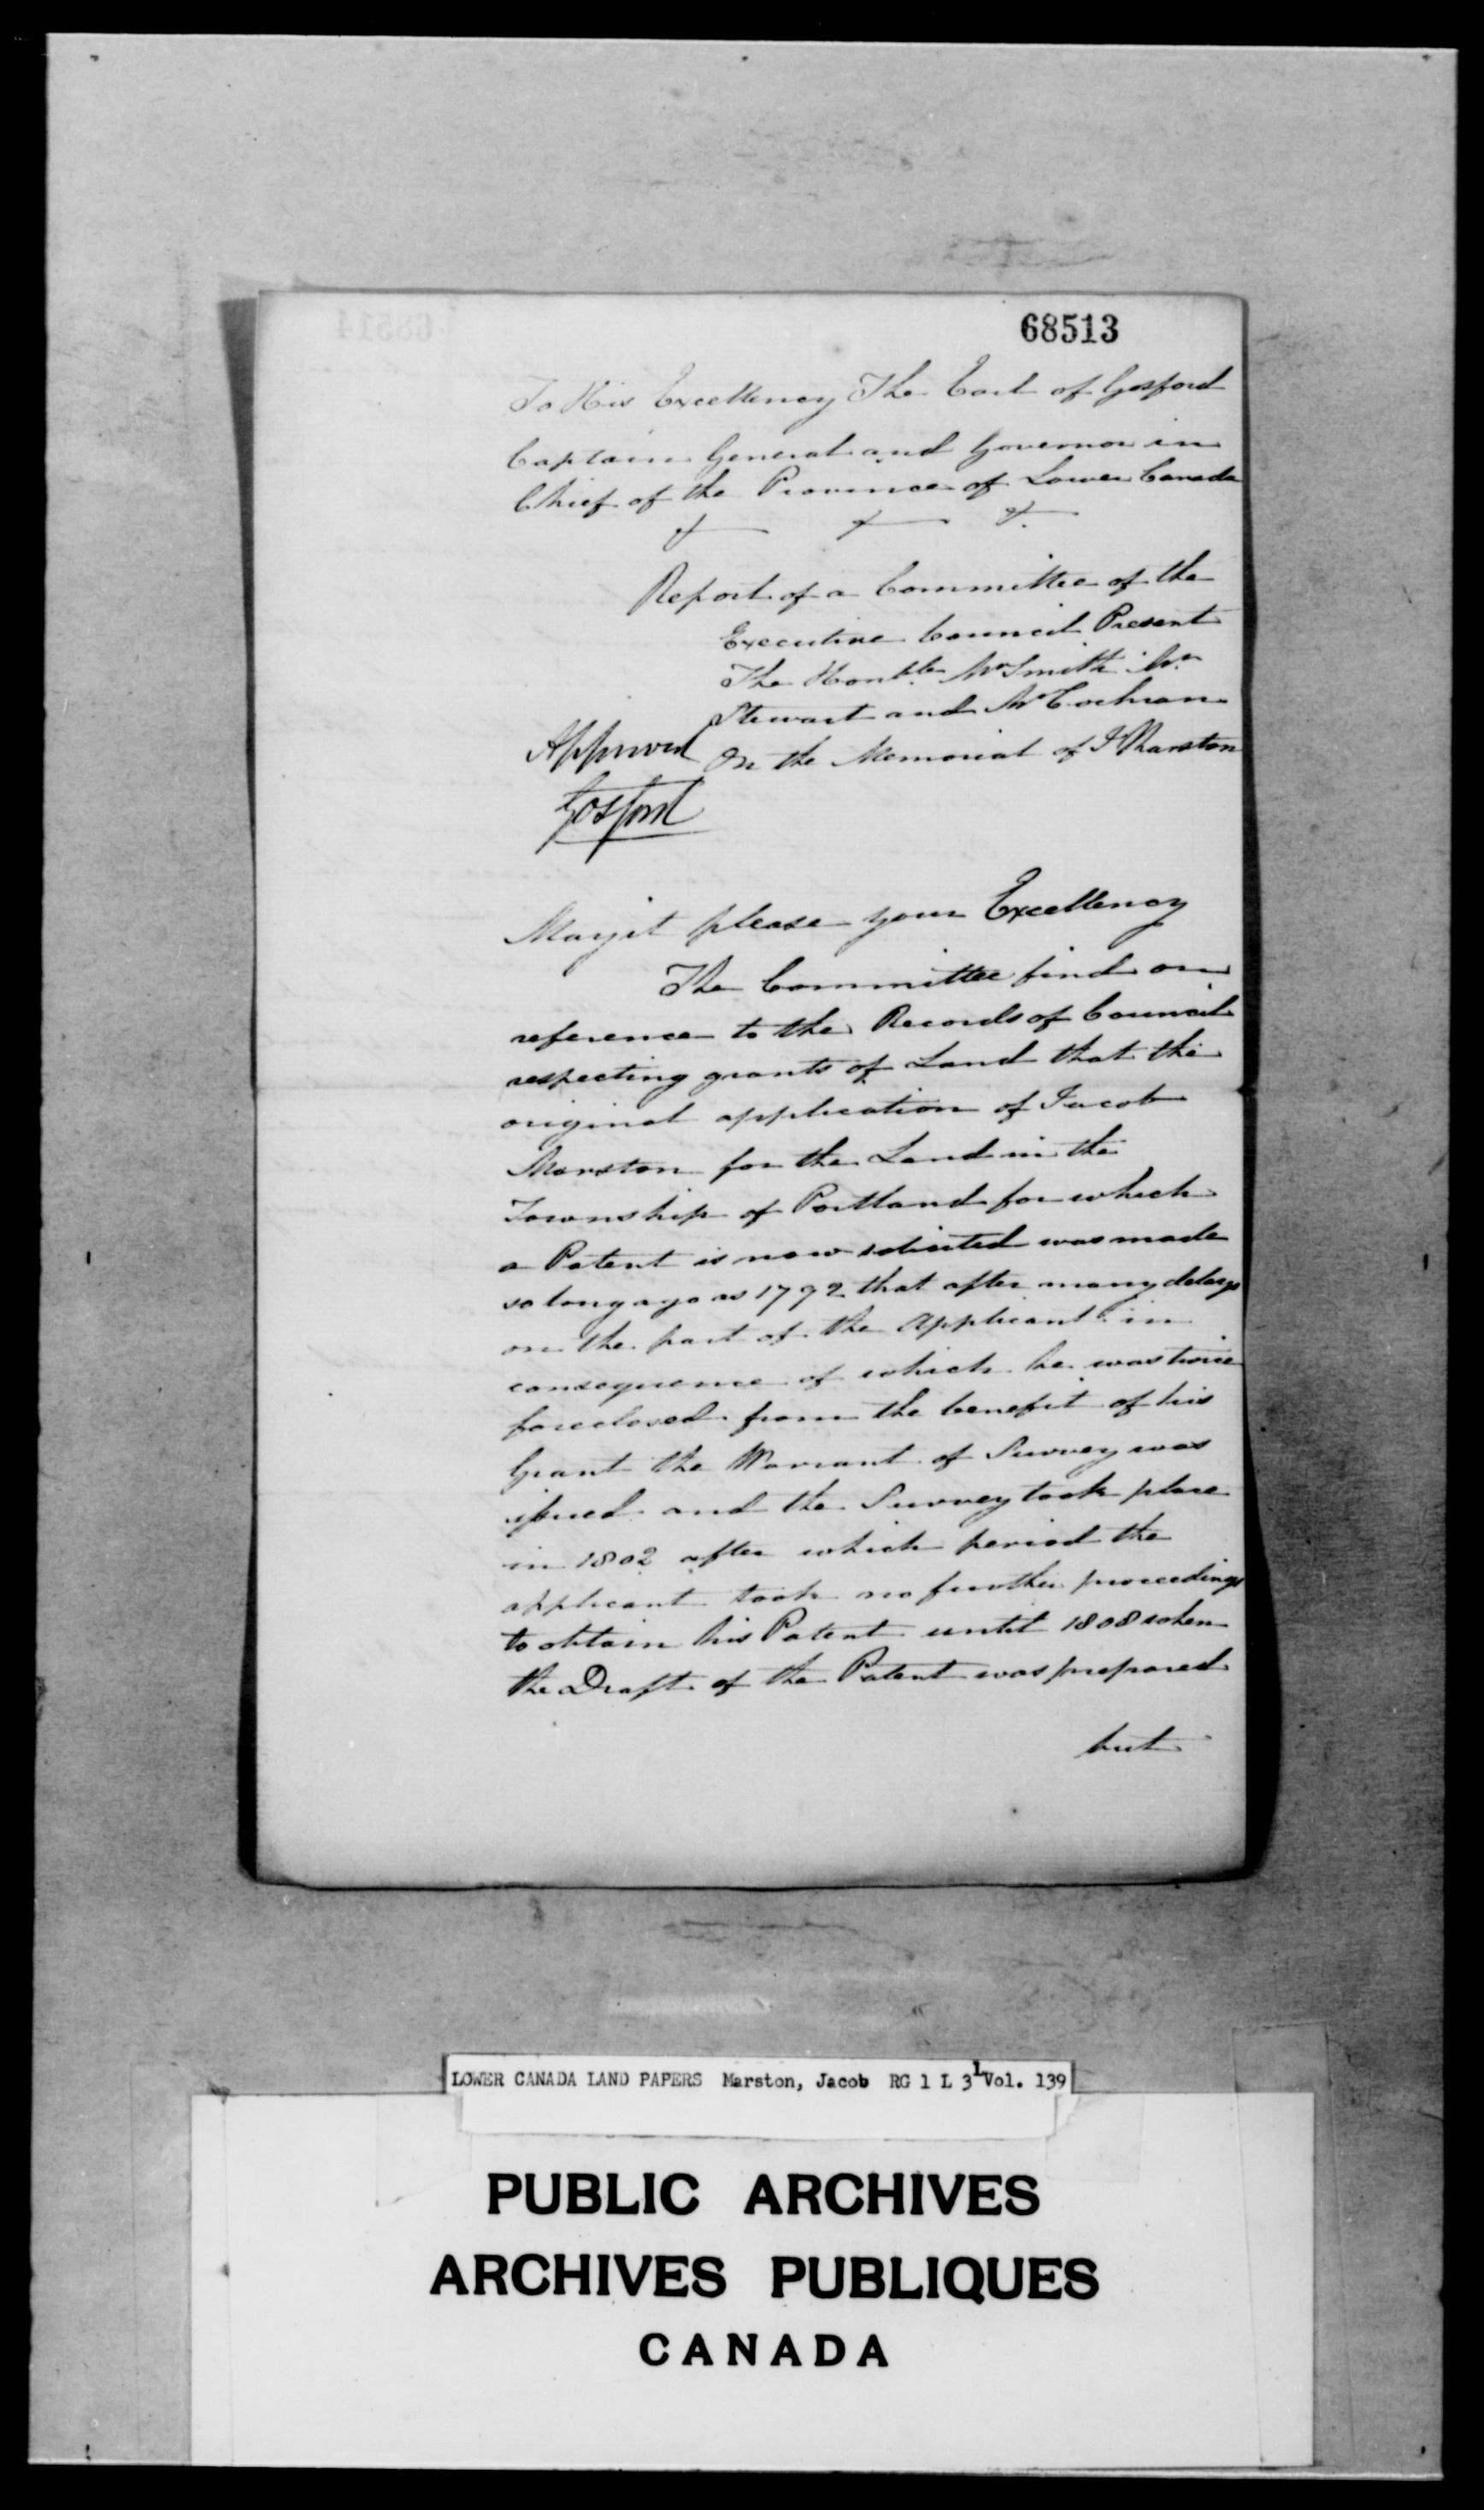 68513
To His Excellency The Earl of Gosford
Captain General and Governor in
Chief of the Province of Lower Canada
&c &c &c
Report of a Committee of the
Executive Council Present
The Honble. Mr Smith Mr
Stewart and Mr Cochran
On the Memorial of J Marston
Approved
Gosford
May it please your Excellency
The Committee find on
reference to the Records of Council
respecting grants of Land that the
original application of Jacob
Marston for the Land in the
Township of Portland for which
a Patent is now solicited was made
so long ago as 1792 that after many delays
on the part of the Applicant in
consequence of which he was twice
foreclosed from the benefit of his
Grant the Warrant of Survey was
issued and the Survey took place
in 1802 after which period the
applicant took no further proceedings
to obtain his Patent until 1808 when
the Draft of the Patent was prepared
but
LOWER CANADA LAND PAPERS Marston, Jacob RG 1 L 3L Vol. 139
PUBLIC ARCHIVES
ARCHIVES PUBLIQUES
CANADA